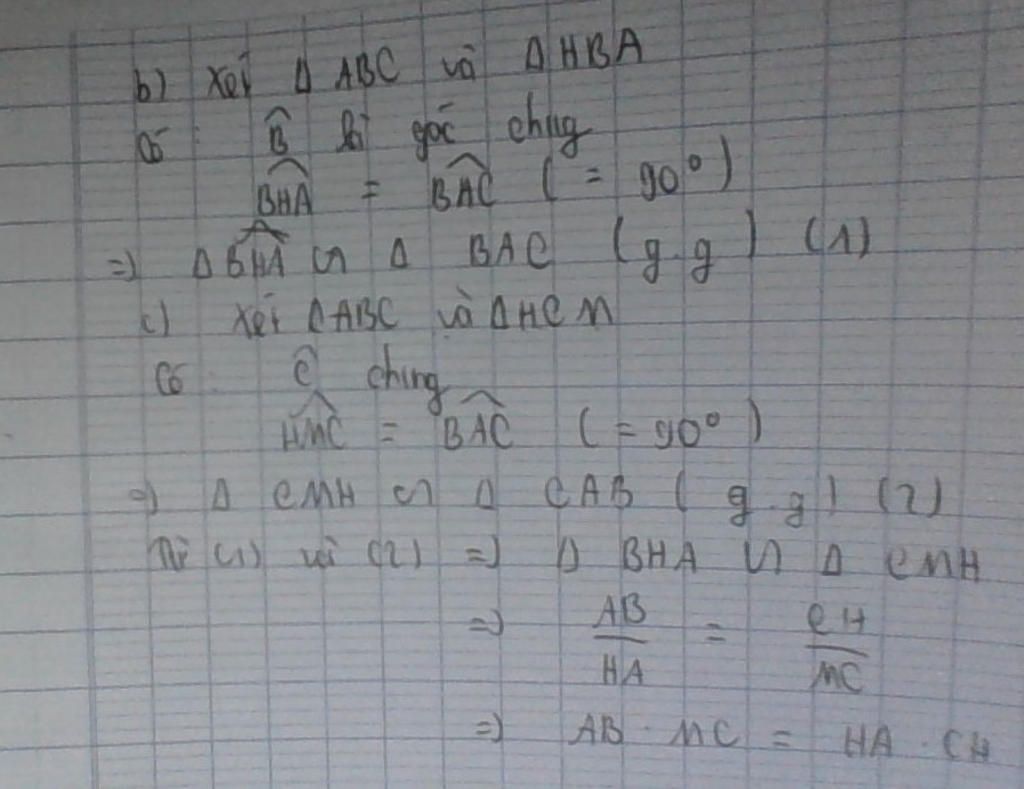 b) Xét Δ ABC và Δ HBA
Có : B̂ là góc chung
\widehat{BHA} = \widehat{BAC} ( = 90°)
=) Δ \widehat{BHA} ∽ Δ BAC (g.g) (1)
c) Xét ΔABC và ΔHCM
Có Ĉ chung
\widehat{HMC} = \widehat{BAC} ( = 90°)
=) Δ CMH ∽ Δ CAB ( g.g) (2)
Từ (1) và (2) =) Δ BHA ∽ Δ CMH
=) AB/HA = CH/MC
=) AB . MC = HA . CH